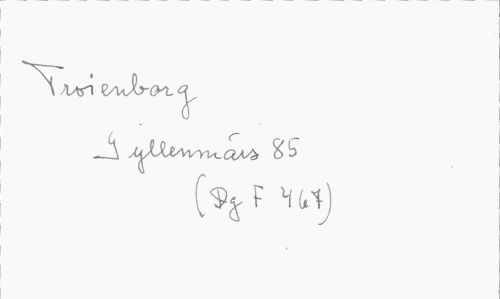 Troienborg
Gyllenmärs 85
(DgF 467)